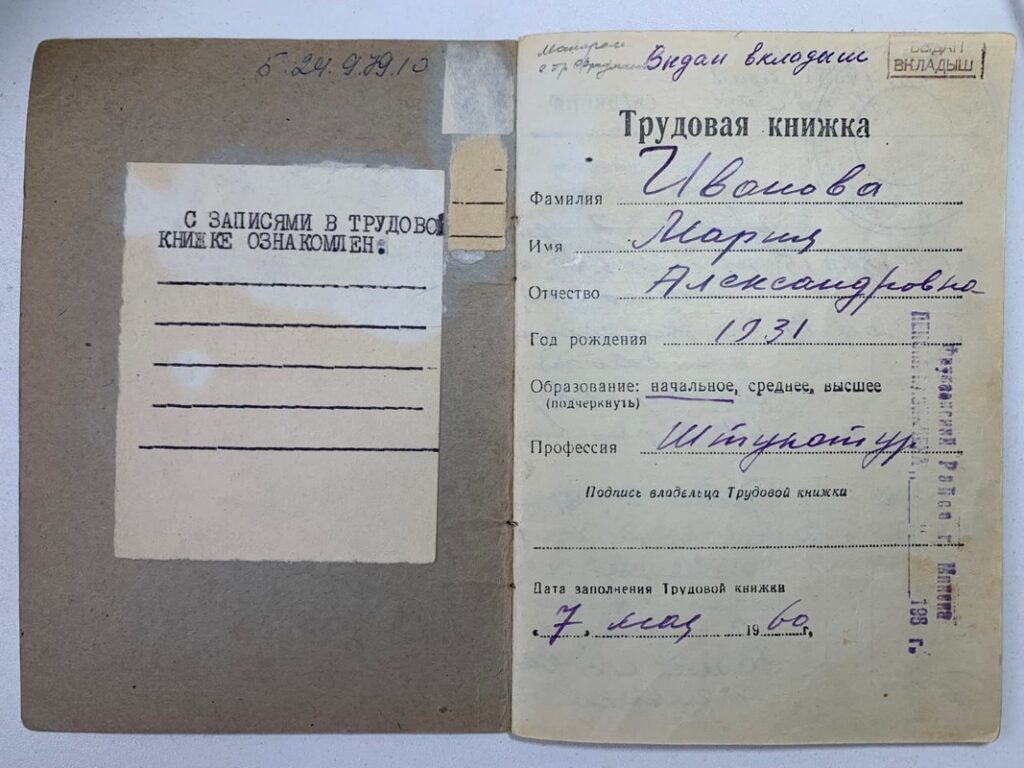 Б-24.9.79.10
С ЗАПИСЯМИ В ТРУДОВОЙ
КНИЖКЕ ОЗНАКОМЛЕН:
Выдан вкладыш
ВЫДАН
ВКЛАДЫШ
Трудовая книжка
Фамилия Иванова
Имя Мария
Отчество Александровна
Год рождения 1931
Образование: начальное, среднее, высшее
(подчеркнуть)
Профессия Штукатур
Подпись владельца Трудовой книжки
Дата заполнения Трудовой книжки
„7" мая 1960 г.
г. Минска
198 г.